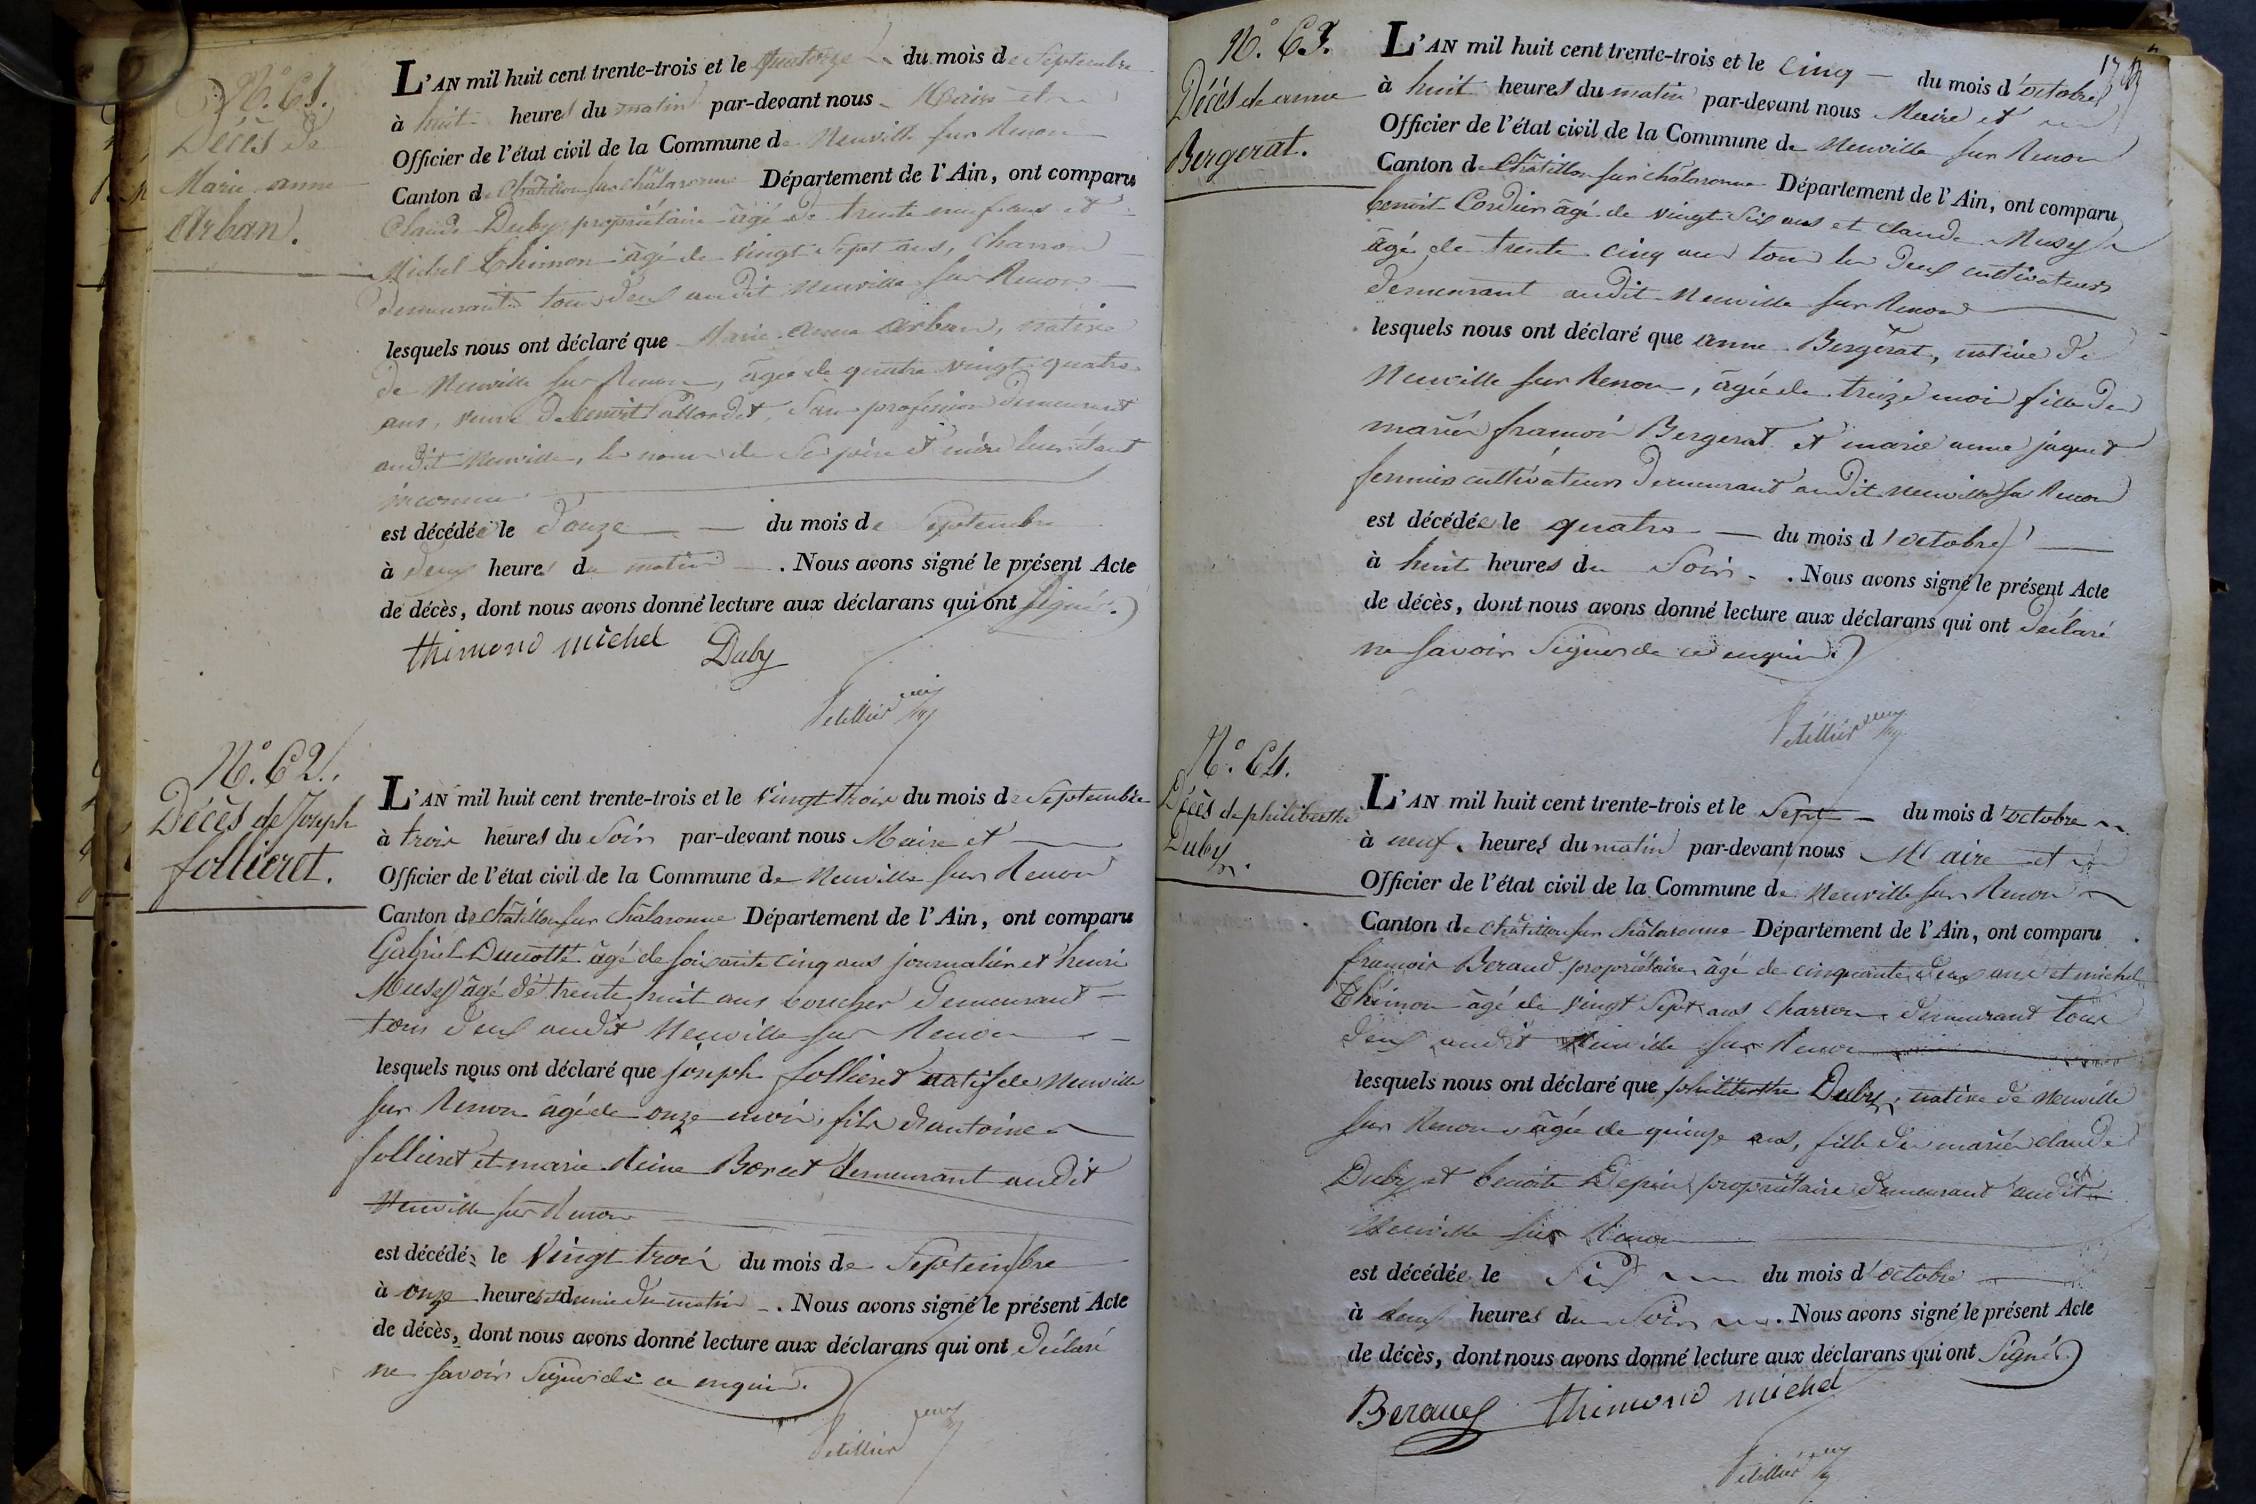 N.° 61.
Décès de
Marie anne
Arban.
L'AN mil huit cent trente-trois et le quatorze du mois de Septembre
à huit heures du matin par-devant nous Maire et
Officier de l'état civil de la Commune de Neuville sur Renon
Canton de Châtillon sur châlaronne Département de l'Ain, ont comparu
Claude Duby propriétaire âgé de trente neuf ans et
Michel Thimon âgé de vingt Sept ans, charron
demeurants tous deux audit Neuville sur Renon
lesquels nous ont déclaré que Marie anne Arban, native
de Neuville sur Renon, âgée de quatre vingt quatre
ans, veuve de benoit, Sans profession demeurant
audit Neuville, les noms de Ses père et mère leur étant
inconnus
est décédée le douze du mois de Septembre
à deux heures du matin. Nous avons signé le présent Acte
de décès, dont nous avons donné lecture aux déclarans qui ont Signés.
thimond michel Duby
N.° 62.
Décès de Joseph
follieret.
L'AN mil huit cent trente-trois et le vingt trois du mois de Septembre
à trois heures du Soir par-devant nous Maire et
Officier de l'état civil de la Commune de Neuville sur Renon
Canton de châtillon sur châlaronne Département de l'Ain, ont comparu
Gabriel âgé de soixante cinq ans journalier et henri
Musy âgé de trente huit ans boucher demeurant
tous deux audit Neuville sur Renon
lesquels nous ont déclaré que joseph follieret natif de Neuville
sur Renon âgé de onze mois, fils d'antoine
follieret et marie Reine demeurant audit
Neuville sur Renon
est décédé le vingt trois du mois de Septembre
à onze heures et demie du matin. Nous avons signé le présent Acte
de décès, dont nous avons donné lecture aux déclarans qui ont déclaré
ne savoir Signer de ce enquis.
N.° 63.
Décès de anne
Bergerat.
L'AN mil huit cent trente-trois et le cinq du mois d'octobre
à huit heures du matin par-devant nous Maire et
Officier de l'état civil de la Commune de Neuville sur Renon
Canton de châtillon sur châlaronne Département de l'Ain, ont comparu
benoit Cordier âgé de vingt Six ans et claude Musy
âgé de trente cinq ans tous les deux cultivateurs
demeurant audit Neuville sur Renon
lesquels nous ont déclaré que anne Bergerat, native de
Neuville sur Renon, âgée de treize mois fille des
mariés françois Bergerat et marie anne jaquet
fermiers cultivateurs demeurant audit Neuville sur Renon
est décédée le quatre du mois d'octobre
à huit heures du Soir. Nous avons signé le présent Acte
de décès, dont nous avons donné lecture aux déclarans qui ont déclaré
ne savoir Signer de ce enquis.
N.° 64.
Décès de philiberthe
Duby.
L'AN mil huit cent trente-trois et le Sept du mois d'octobre
à neuf heures du matin par-devant nous Maire et
Officier de l'état civil de la Commune de Neuville sur Renon
Canton de châtillon sur châlaronne Département de l'Ain, ont comparu
françois Beraud propriétaire âgé de cinquante deux ans et michel
Thimon âgé de vingt Sept ans charron demeurant tous
deux audit Neuville sur Renon
lesquels nous ont déclaré que philiberthe Duby, native de Neuville
sur Renon âgée de quinze ans, fille des mariés claude
Duby et benoite propriétaire demeurant audit
Neuville sur Renon
est décédée le Six du mois d'octobre
à deux heures du Soir. Nous avons signé le présent Acte
de décès, dont nous avons donné lecture aux déclarans qui ont Signés
Beraud thimond michel